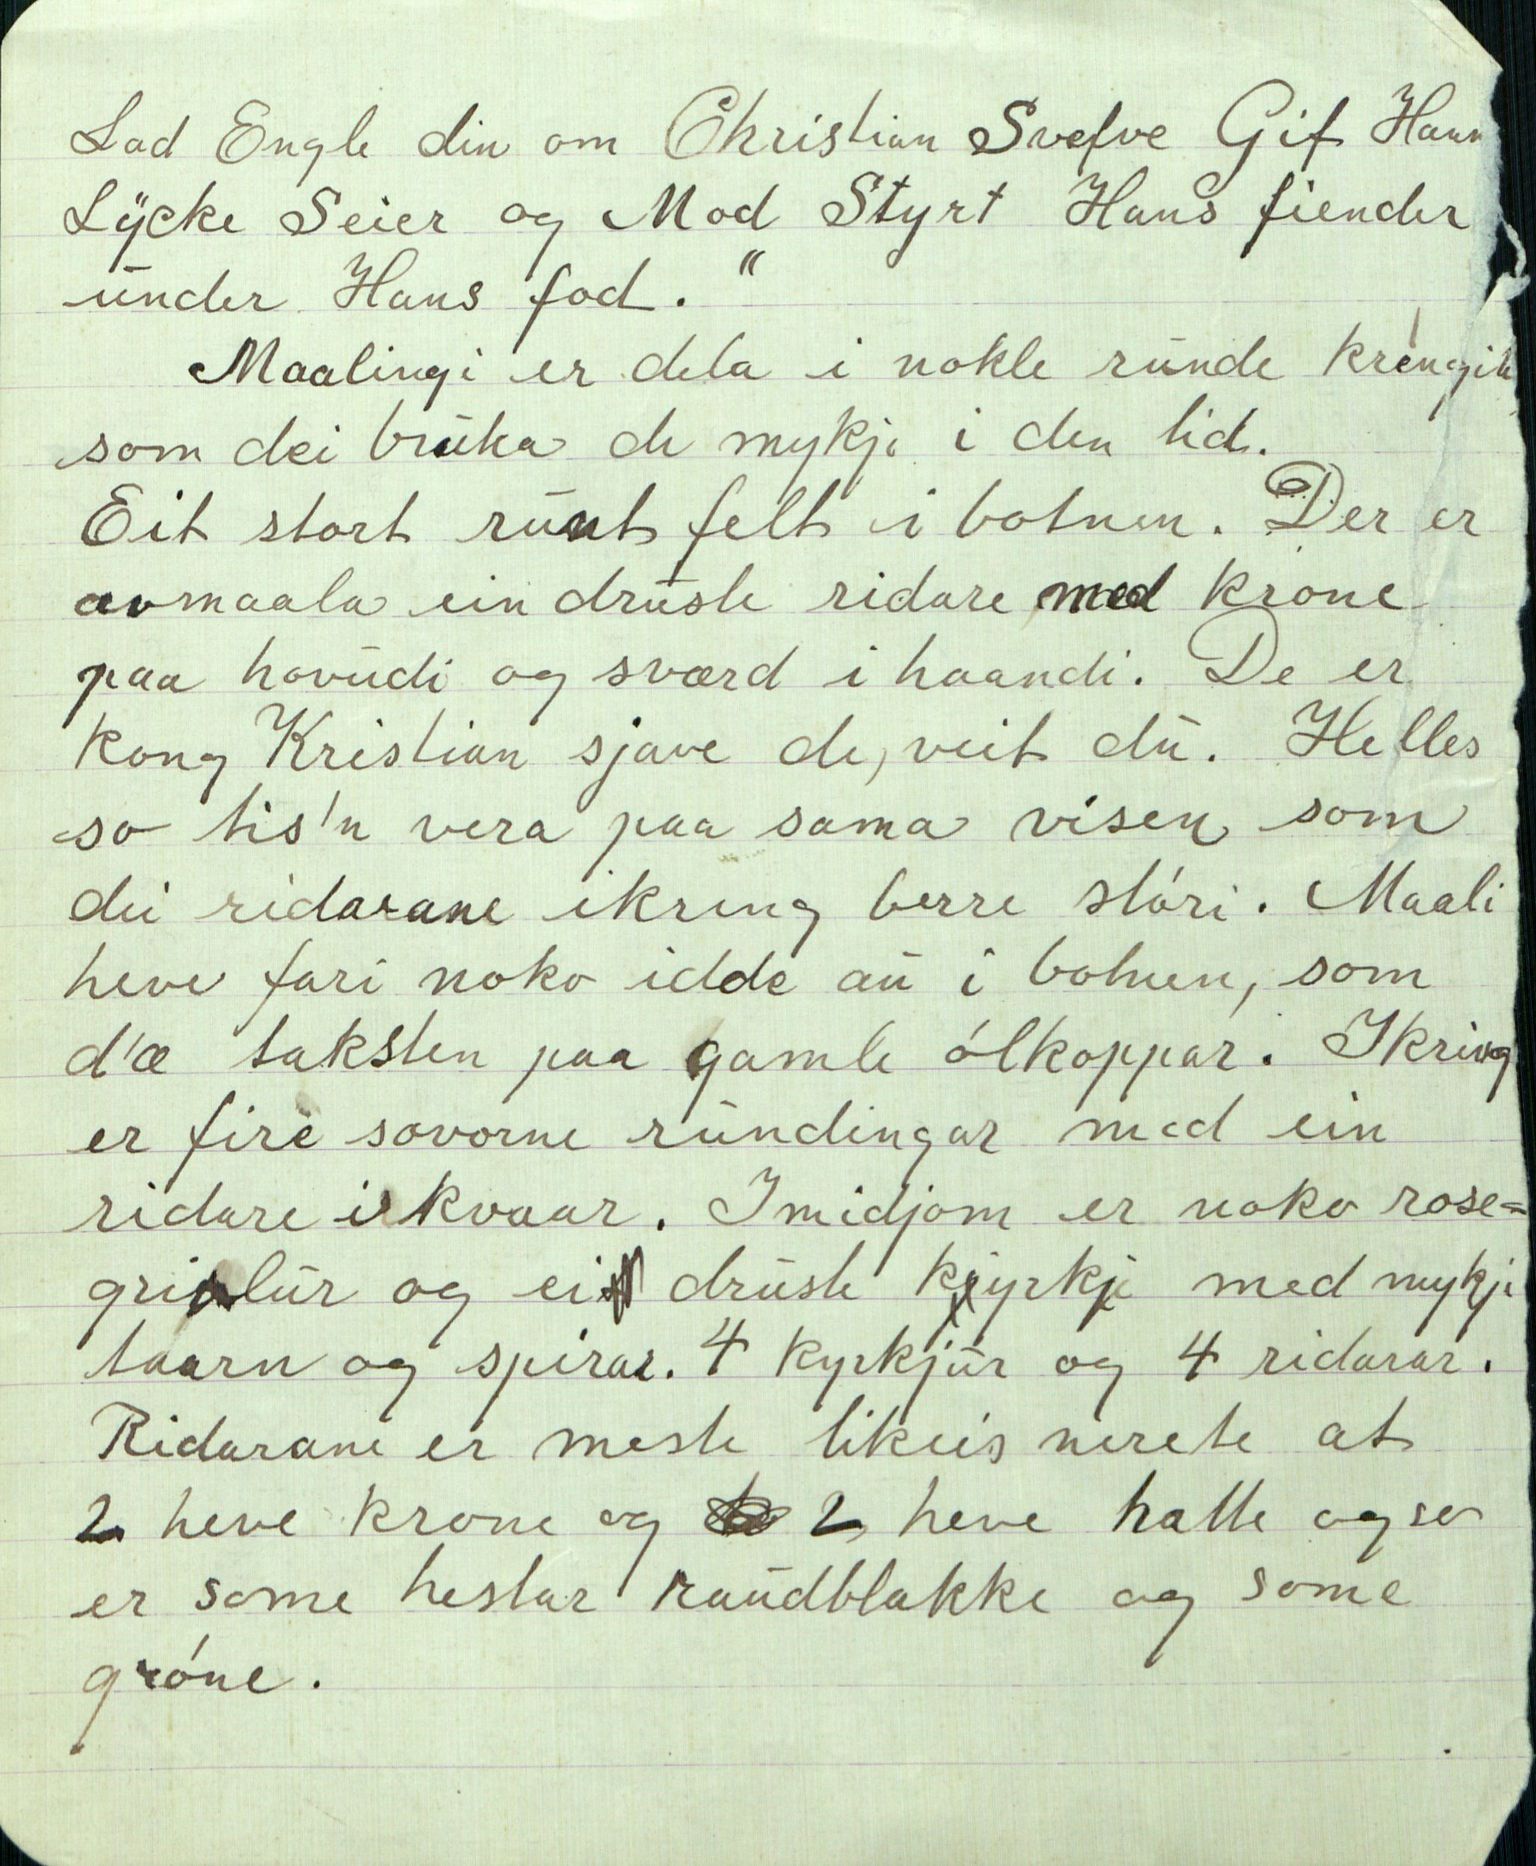 Lad Engle din om Christian Svefve Gif Hann
Lycke Seier og Mod Styrt Hans fiender
under Hans fod."
Maalingi er dela i nokle runde
som dei bruka de mykje i den tid.
Eit stort runt felt i botnen. Der er
avmaala ein druste ridare med krone
paa hovudi og sværd i haandi. De er
kong Kristian sjave de, veit du. Helles
so tis'n vera paa sama visen som
dei ridarane ikring berre stóri. Maali
heve fari noko idde au i botnen, som
d'æ taksten paa gamle ólkoppar. Ikring
er fire sovorne rundingar med ein
ridare i kvaar. Imidjom er noko rose=
og ei druste kyrkje med mykje
taarn og spirar. 4 kyrkjur og 4 ridarar.
Ridarane er meste likeis nerete at
2 heve krone og 2 heve hatte og so
er some hestar raudblakke og some
gróne.